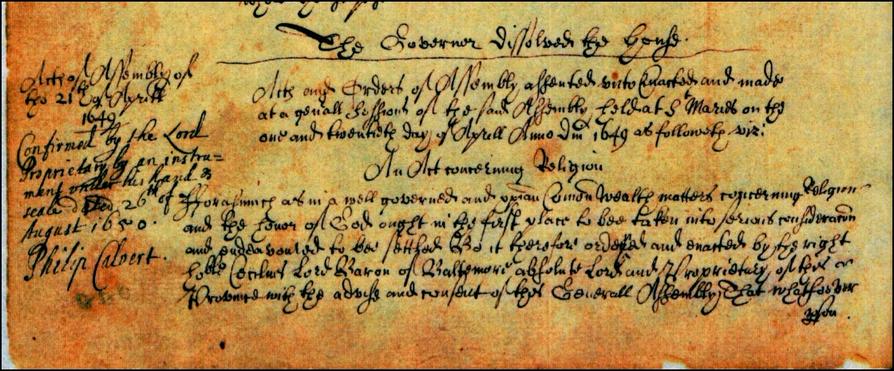 The Governor dissolved the house.
Acts of Assembly of
the 21th of Aprill
1649
Confirmed by the Lord
Proprietary by an instru-
ment under his hand &
seale dated 26th of
August 1650.
Philip Calvert.
Acts and Orders of Assembly assented vnto Enacted and made
at a genall Sessions of the said Assembly held at St Maries on the
one and twentieth day of Aprill Anno Dm 1649 as followeth viz:
An Act concerning Religion
fforasmuch as in a well governed and xpian Comon Wealth matters concerning Religion
and the honor of God ought in the first place to bee taken into serious consideracon
and endeavoured to bee settled Be it therefore ordered and enacted by the right
hoble Cecilius Lord Baron of Baltemore absolute Lord and Proprietary of this
Province with the advise and consent of this Generall Assembly That whatsoever
pson